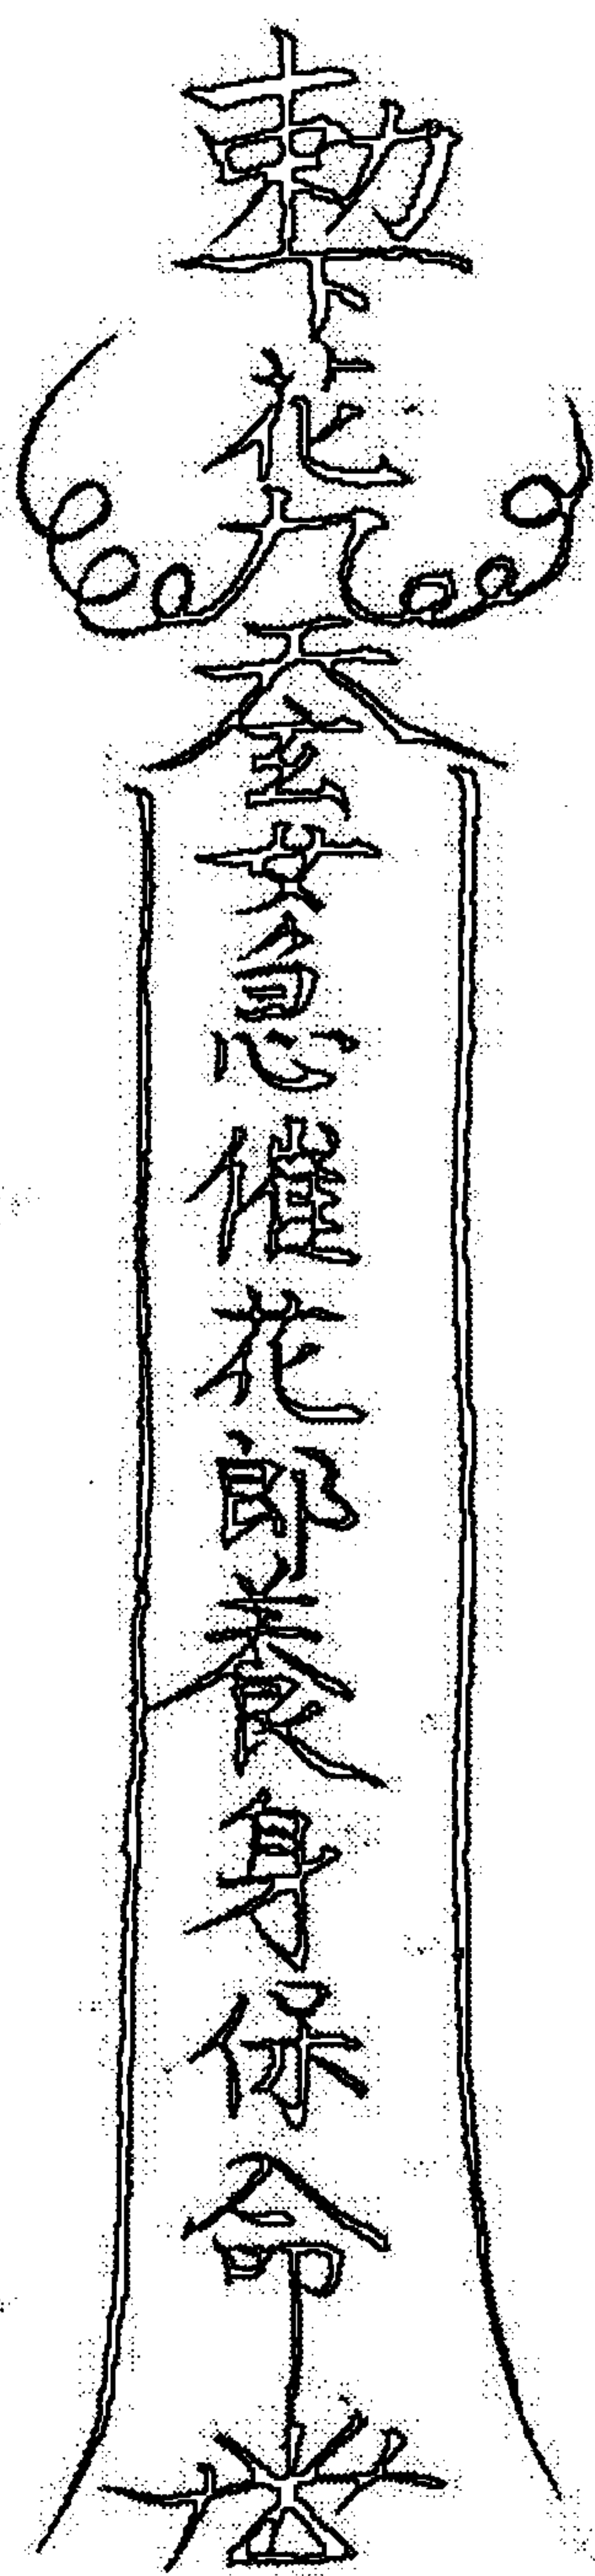 勅下
花
九
天
玄
女
急
催
花
郎
養
身
保
命